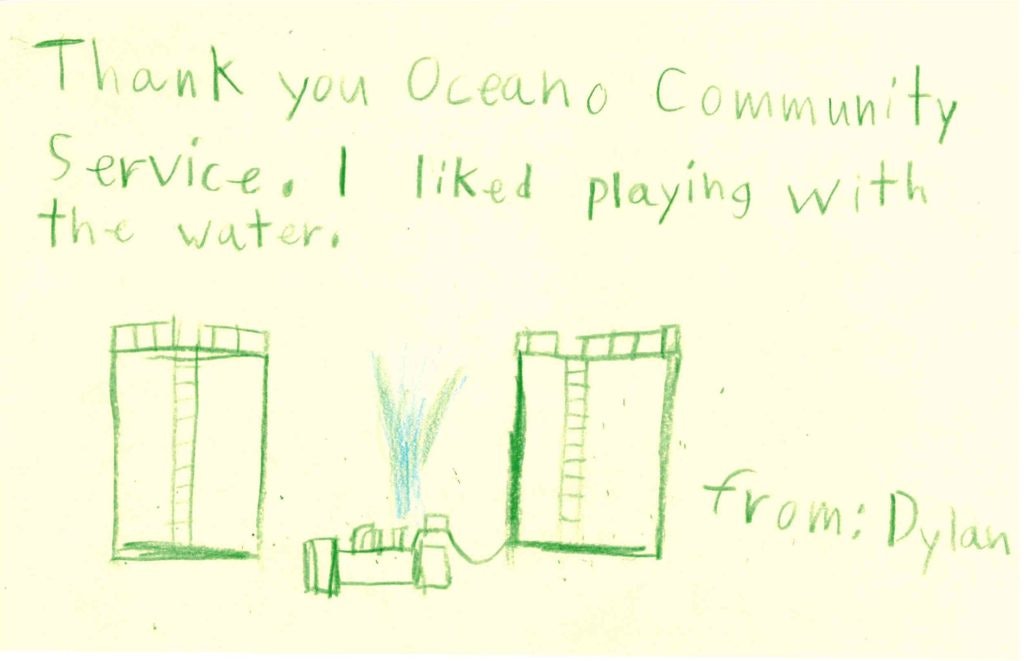 Thank you Oceano Community
Service. I liked playing with
the water.
from: Dylan